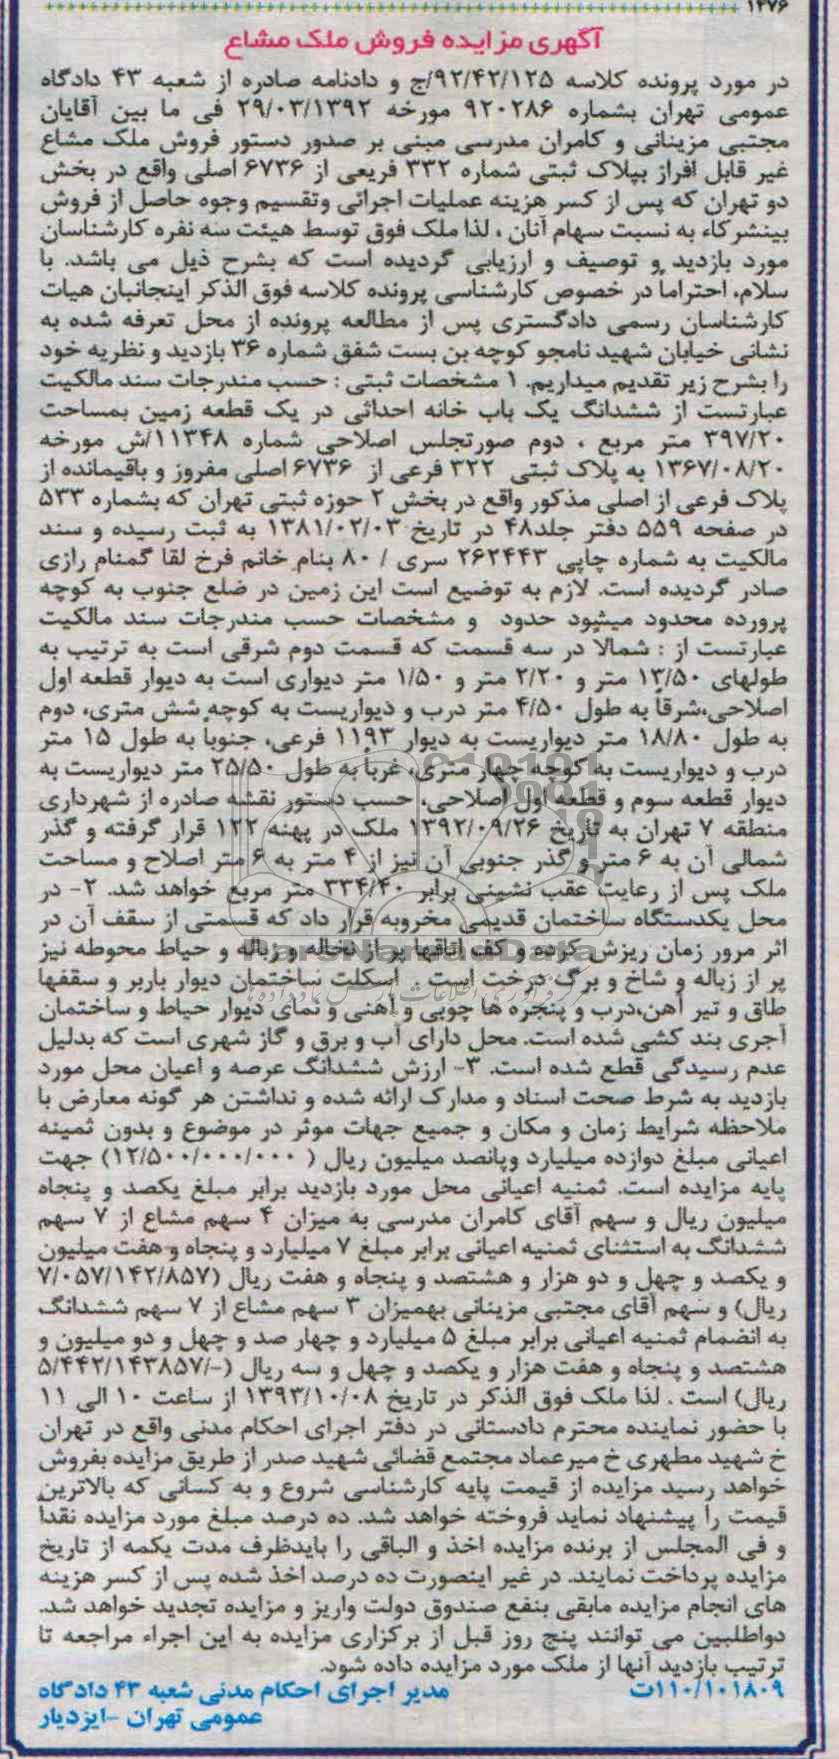 ۱۳۷۶
آگهری مزایده فروش ملک مشاع
در مورد پرونده کلاسه ۹۲/۴۲/۱۲۵/ج و دادنامه صادره از شعبه ۴۳ دادگاه
عمومی تهران بشماره ۹۲۰۲۸۶ مورخه ۲۹/۰۳/۱۳۹۲ فی ما بین آقایان
مجتبی مزینانی و کامران مدرسی مبنی بر صدور دستور فروش ملک مشاع
غیر قابل افراز بپلاک ثبتی شماره ۳۳۲ فریعی از ۶۷۳۶ اصلی واقع در بخش
دو تهران که پس از کسر هزینه عملیات اجرائی وتقسیم وجوه حاصل از فروش
بینشرکاء به نسبت سهام آنان ، لذا ملک فوق توسط هیئت سه نفره کارشناسان
مورد بازدید و توصیف و ارزیابی گردیده است که بشرح ذیل می باشد. با
سلام، احتراماً در خصوص کارشناسی پرونده کلاسه فوق الذکر اینجانبان هیات
کارشناسان رسمی دادگستری پس از مطالعه پرونده از محل تعرفه شده به
نشانی خیابان شهید نامجو کوچه بن بست شفق شماره ۳۶ بازدید و نظریه خود
را بشرح زیر تقدیم میداریم. ۱ مشخصات ثبتی : حسب مندرجات سند مالکیت
عبارتست از ششدانگ یک باب خانه احداثی در یک قطعه زمین بمساحت
۳۹۷/۲۰ متر مربع ، دوم صورتجلس اصلاحی شماره ۱۱۳۴۸/ش مورخه
۱۳۶۷/۰۸/۲۰ به پلاک ثبتی ۳۲۲ فرعی از ۶۷۳۶ اصلی مفروز و باقیمانده از
پلاک فرعی از اصلی مذکور واقع در بخش ۲ حوزه ثبتی تهران که بشماره ۵۳۳
در صفحه ۵۵۹ دفتر جلد۴۸ در تاریخ ۱۳۸۱/۰۲/۰۳ به ثبت رسیده و سند
مالکیت به شماره چاپی ۲۶۲۴۴۳ سری / ۸۰ بنام خانم فرخ لقا گمنام رازی
صادر گردیده است. لازم به توضیع است این زمین در ضلع جنوب به کوچه
پرورده محدود میشود حدود و مشخصات حسب مندرجات سند مالکیت
عبارتست از : شمالا در سه قسمت که قسمت دوم شرقی است به ترتیب به
طولهای ۱۳/۵۰ متر و ۲/۲۰ متر و ۱/۵۰ متر دیواری است به دیوار قطعه اول
اصلاحی،شرقاً به طول ۴/۵۰ متر درب و دیواریست به کوچه شش متری، دوم
به طول ۱۸/۸۰ متر دیواریست به دیوار ۱۱۹۳ فرعی، جنوباً به طول ۱۵ متر
درب و دیواریست به کوچه چهار متری، غرباً به طول ۲۵/۵۰ متر دیواریست به
دیوار قطعه سوم و قطعه اول اصلاحی، حسب دستور نقشه صادره از شهرداری
منطقه ۷ تهران به تاریخ ۱۳۹۲/۰۹/۲۶ ملک در پهنه ۱۲۲ قرار گرفته و گذر
شمالی آن به ۶ متر و گذر جنوبی آن نیز از ۴ متر به ۶ متر اصلاح و مساحت
ملک پس از رعایت عقب نشینی برابر ۳۳۴/۴۰ متر مربع خواهد شد. ۲- در
محل یکدستگاه ساختمان قدیمی مخروبه قرار داد که قسمتی از سقف آن در
اثر مرور زمان ریزش کرده و کف اتاقها پر از نخاله و زباله و حیاط محوطه نیز
پر از زباله و شاخ و برگ درخت است . اسکلت ساختمان دیوار باربر و سقفها
طاق و تیر آهن،درب و پنجره ها چوبی و آهنی و نمای دیوار حیاط و ساختمان
آجری بند کشی شده است. محل دارای آب و برق و گاز شهری است که بدلیل
عدم رسیدگی قطع شده است. ۳- ارزش ششدانگ عرصه و اعیان محل مورد
بازدید به شرط صحت اسناد و مدارک ارائه شده و نداشتن هر گونه معارض با
ملاحظه شرایط زمان و مکان و جمیع جهات موثر در موضوع و بدون ثمینه
اعیانی مبلغ دوازده میلیارد وپانصد میلیون ریال ( ۱۲/۵۰۰/۰۰۰/۰۰۰) جهت
پایه مزایده است. ثمنیه اعیانی محل مورد بازدید برابر مبلغ یکصد و پنجاه
میلیون ریال و سهم آقای کامران مدرسی به میزان ۴ سهم مشاع از ۷ سهم
ششدانگ به استثنای ثمنیه اعیانی برابر مبلغ ۷ میلیارد و پنجاه و هفت میلیون
و یکصد و چهل و دو هزار و هشتصد و پنجاه و هفت ریال (۷/۰۵۷/۱۴۲/۸۵۷
ریال) و سهم آقای مجتبی مزینانی بهمیزان ۳ سهم مشاع از ۷ سهم ششدانگ
به انضمام ثمنیه اعیانی برابر مبلغ ۵ میلیارد و چهار صد و چهل و دو میلیون و
هشتصد و پنجاه و هفت هزار و یکصد و چهل و سه ریال (-/۵/۴۴۲/۱۴۳۸۵۷
ریال) است . لذا ملک فوق الذکر در تاریخ ۱۳۹۳/۱۰/۰۸ از ساعت ۱۰ الی ۱۱
با حضور نماینده محترم دادستانی در دفتر اجرای احکام مدنی واقع در تهران
خ شهید مطهری خ میرعماد مجتمع قضائی شهید صدر از طریق مزایده بفروش
خواهد رسید مزایده از قیمت پایه کارشناسی شروع و به کسانی که بالاترین
قیمت را پیشنهاد نماید فروخته خواهد شد. ده درصد مبلغ مورد مزایده نقداً
و فی المجلس از برنده مزایده اخذ و الباقی را بایدظرف مدت یکمه از تاریخ
مزایده پرداخت نمایند. در غیر اینصورت ده درصد اخذ شده پس از کسر هزینه
های انجام مزایده مابقی بنفع صندوق دولت واریز و مزایده تجدید خواهد شد.
دواطلبین می توانند پنج روز قبل از برگزاری مزایده به این اجراء مراجعه تا
ترتیب بازدید آنها از ملک مورد مزایده داده شود.
۱۱۰/۱۰۱۸۰۹ت مدیر اجرای احکام مدنی شعبه ۴۳ دادگاه
عمومی تهران -ایزدیار